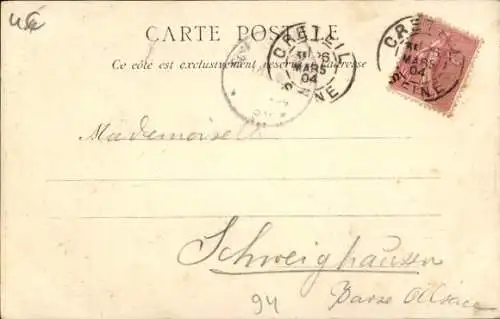 CARTE POSTALE
Ce côté est exclusivement réservé à l'adresse
CRETEIL
MARS
04
SEINE
CRETEIL
MARS
04
SEINE
Mademoiselle
Schweighausen
94
Basse Alsace